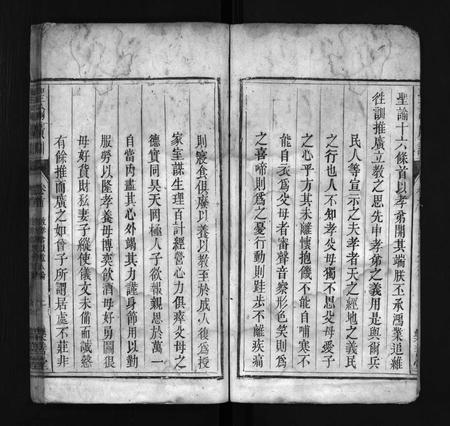 聖諭十六條首以孝弟開其端朕丕承鴻業追維
徃訓推廣立教之思先申孝弟之義用是與爾兵
民人等宣示之夫孝者天之經地之義民
之行也人不知孝父母獨不思父母愛子
之心乎方其未離懷抱饑不能自哺寒不
能自衣為父母者審聲音察形色笑則為
之喜啼則為之憂行動則跬步不離疾痛
則寢食俱廢以養以教至於成人復為授
家室謀生理百計經營心力俱瘁父母之
德實同昊天罔極人子欲報親恩於萬一
自當內盡其心外竭其力謹身節用以勤
服勞以隆孝養毋博奕飲酒毋好勇鬬很
毋好貨財私妻子縱使儀文未備而誠慤
有餘推而廣之如曾子所謂居處不莊非
聖諭廣訓